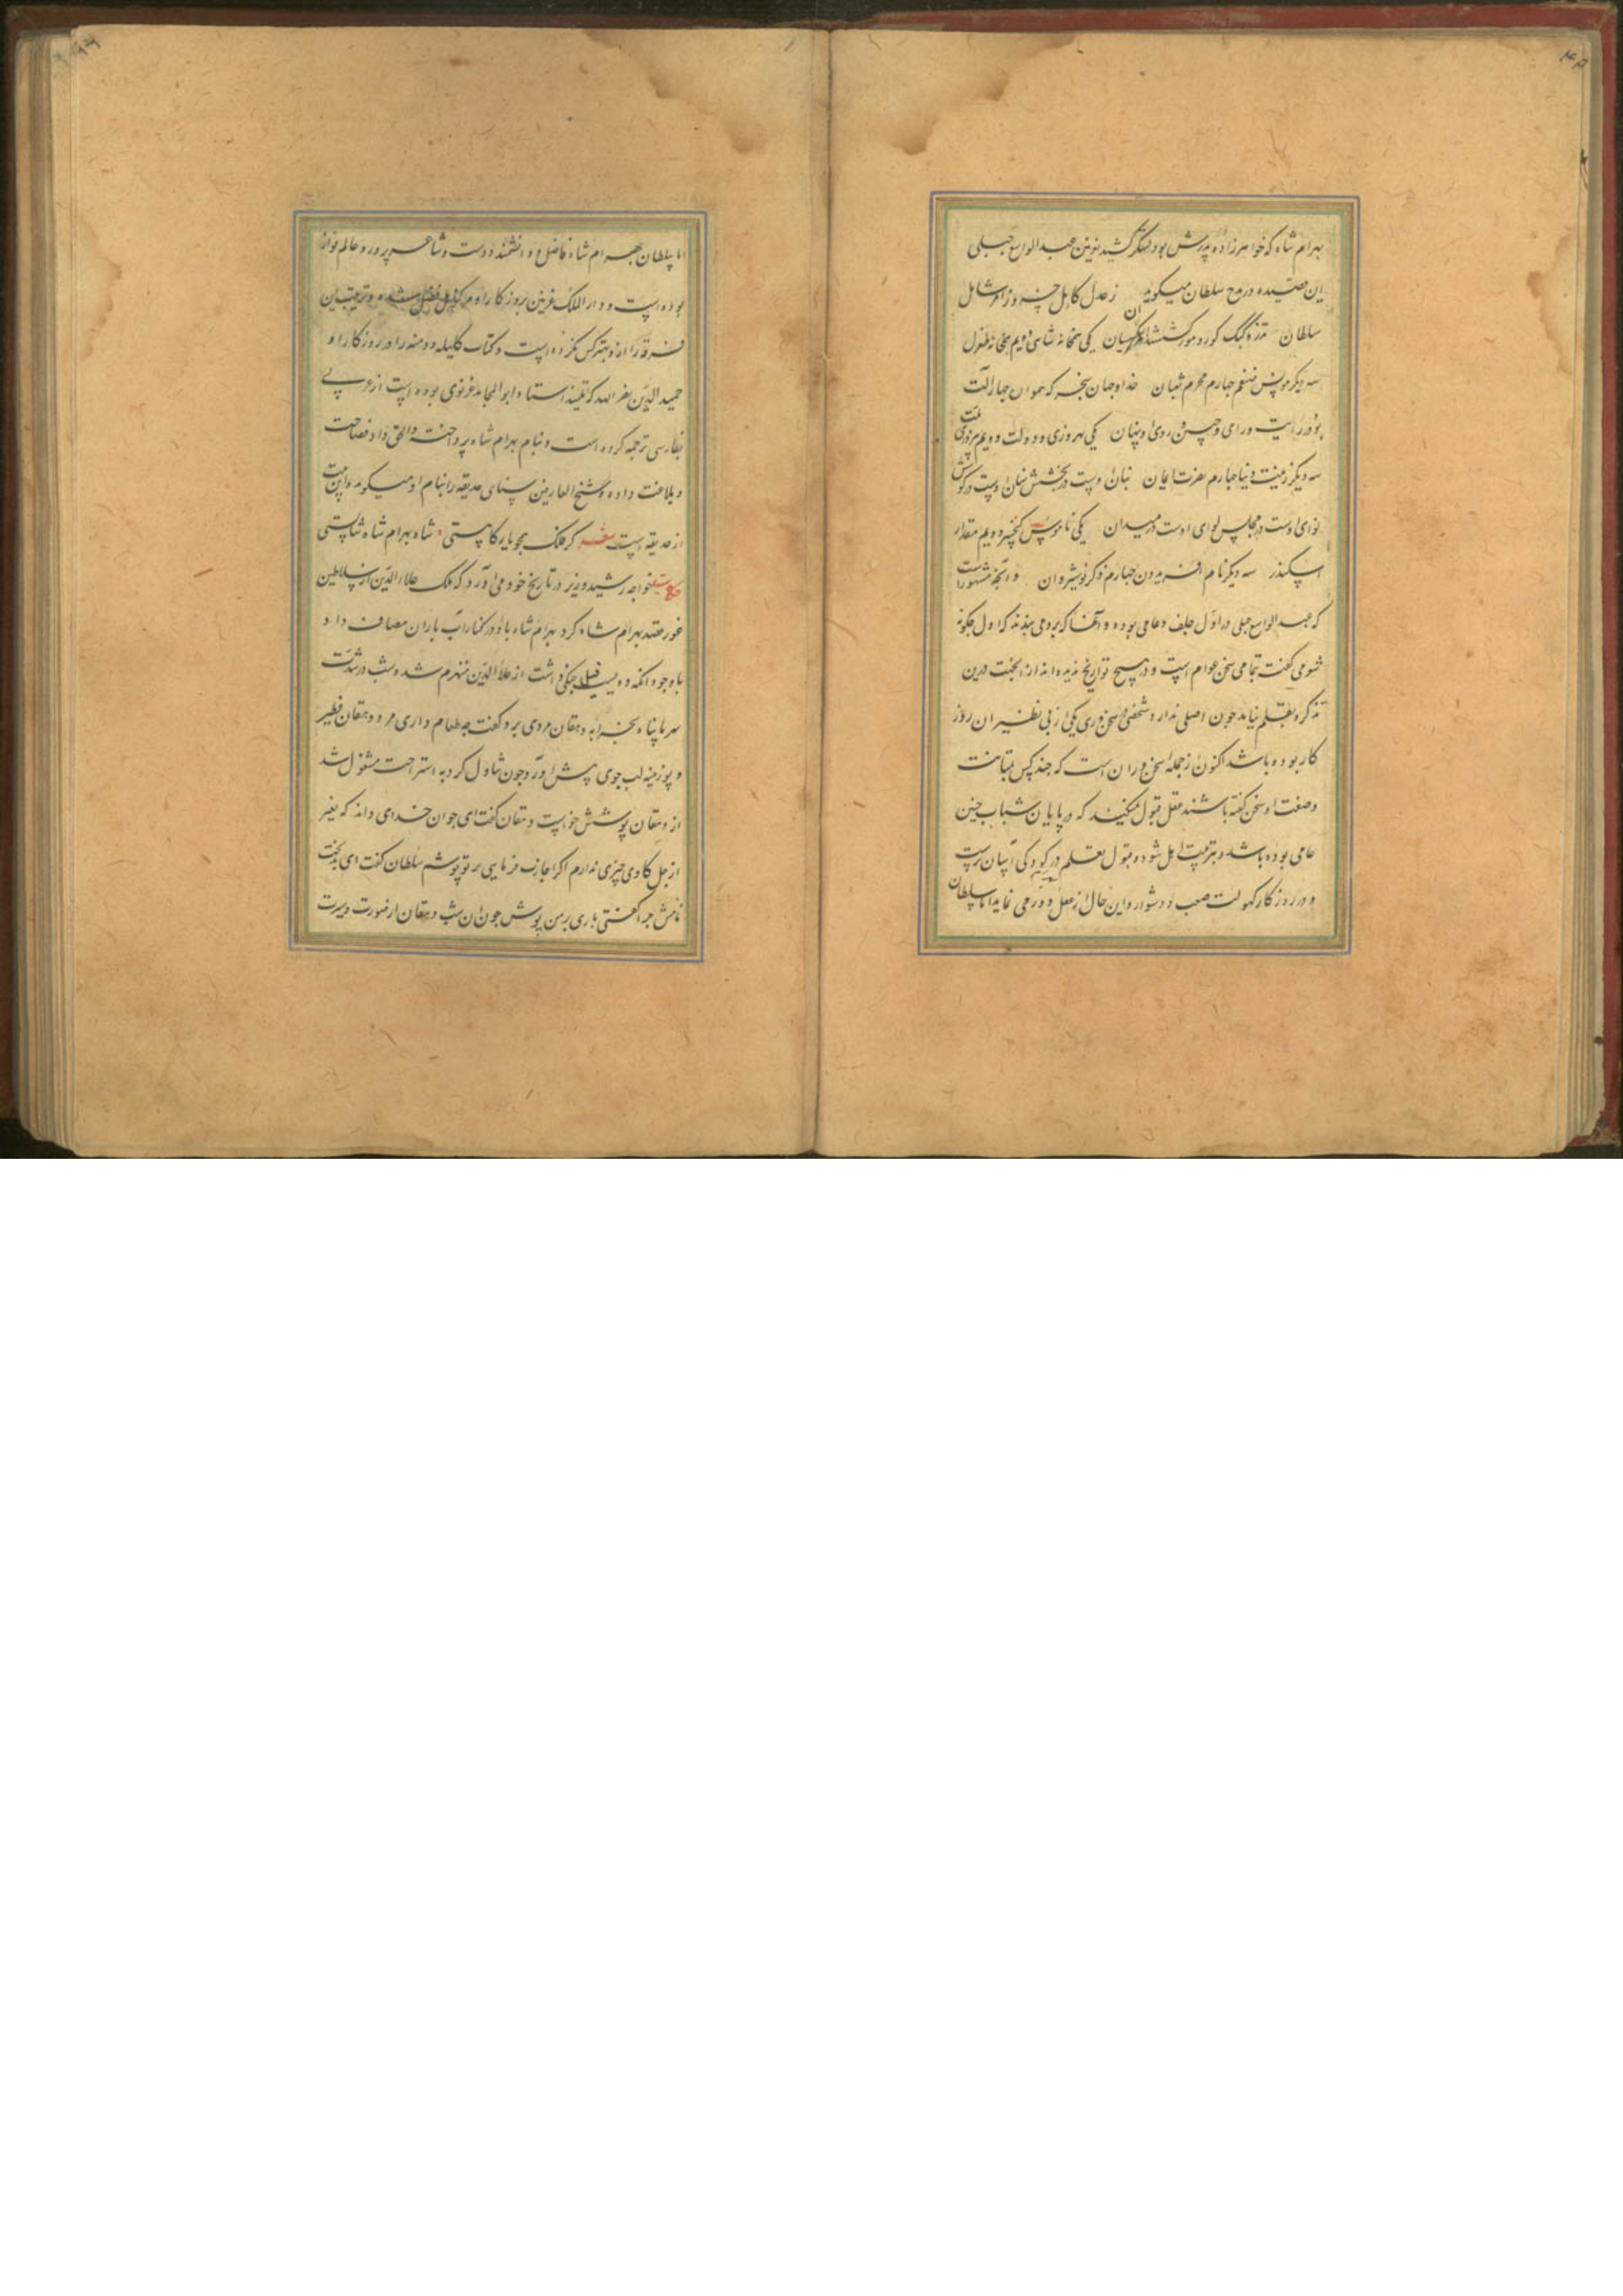 بهرام شاه که خواهرزاده پدرش بود لشکر کشید بغزنین عبد الواسع جبلی
این قصیده در مدح سلطان میکوید ز عدل کامل خسرو ز امن شامل
سلطان تذرو کبک کور و مور کشتند یکی همخانه شاهین دویم همخانه طغرل
سه دیکر مونس ضیغم چهارم محرم ثعبان خداوند جهان سنجر که همواره چهار آلت
بود در رایت و رای و جبین و روی او پنهان یکی بهروزی و دولت دویم فیروزی
سه دیکر زینت دنیا چهارم نصرت ایمان بنان اوست در بخشش سنان اوست در کوشش
لوای اوست در مجلس لوای اوست در میدان یکی ناموس کیخسرو دویم مقدار
اسکندر سه دیکر نام افریدون چهارم ذکر نوشیروان و آنچه مشهورست
که عبد الواسع جبلی در اول جلف و عامی بوده و آنها که برو می بندند که اول چکونه
شعر می کفت تمامی سخن عوام است و در هیچ تواریخ ندیده‌اند از آنجهت درین
تذکره بقلم نیامد چون اصلی ندارد و شخصی در سخن‌وری یکی از بی نظیران روز
کار بوده باشد اکنون از جمله سخن‌وران است که چند کس بمتانت
و صنعت او سخن کفته باشند عقل قبول نمیکند که در پایان شباب چنین
عامی بوده باشد و بتربیت اهل شود و قبول تعلیم در کودکی آسان ترست
و در روزکار کهولت صعب و دشوار و این حال از عقل دور می نماید اما سلطان
اما سلطان بهرام شاه فاضل و دانشمند دوست و شاعر پرور و عالم نواز
بوده است و دار الملک غزنین بروزکار او مرکز اهل فضل شده و تربیت این
فرقه را از او بهتر کس نکرده است و کتاب کلیله و دمنه را در روزکار او
حمید الدین نصر الله که تلمیذ استاد ابو المحامد غزنوی بوده است از عربی
بفارسی ترجمه کرده است و بنام بهرام شاه پرداخته و الحق داد فصاحت
و بلاغت داده و شیخ العارفین سنای حدیقه را بنام او میکوید و این بیت
از حدیقه است شعر کر فلک همچو بارکاهستی شاه بهرام شاه شاهستی
حکایت خواجه رشید وزیر در تاریخ خود می آورد که ملک علاء الدین از سلاطین
غور قصد بهرام شاه کرد بهرام شاه با او در کنار آب باران مصاف داد
با وجود آنکه دویست فیل جنکی داشت از علا الدین منهزم شد و شب در شدت
سرما پناه بخرابه دهقان مردی برد و کفت چه طعام داری مرد دهقان فطیر
و پوزینه لب جوی پیش آورد چون تناول کرد به استراحت مشغول شد
از دهقان پوشش خواست دهقان کفت ای جوان خدای داند که بغیر
از جل کاوی چیزی ندارم اکر اجازت فرمایی بر تو پوشم سلطان کفت ای بدبخت
نامش چرا کفتی باری بر من پوش چون آن شب دهقان از صورت و سیرت